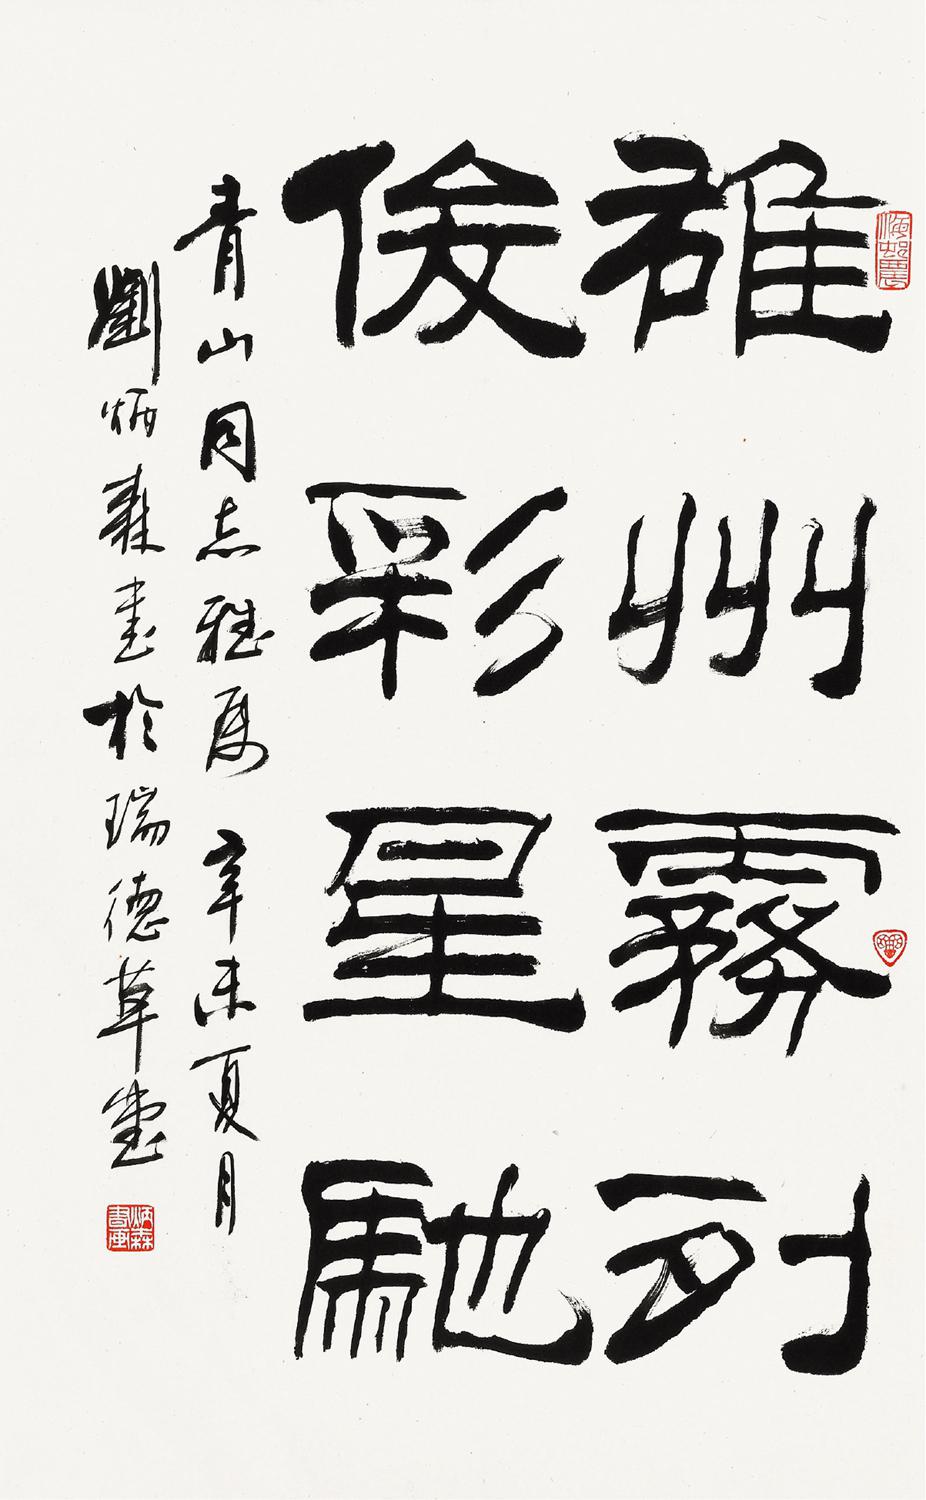 雄州霧列
俊彩星馳
青山同志雅屬 辛未夏月
劉炳森書於瑞德草堂
炳森書画